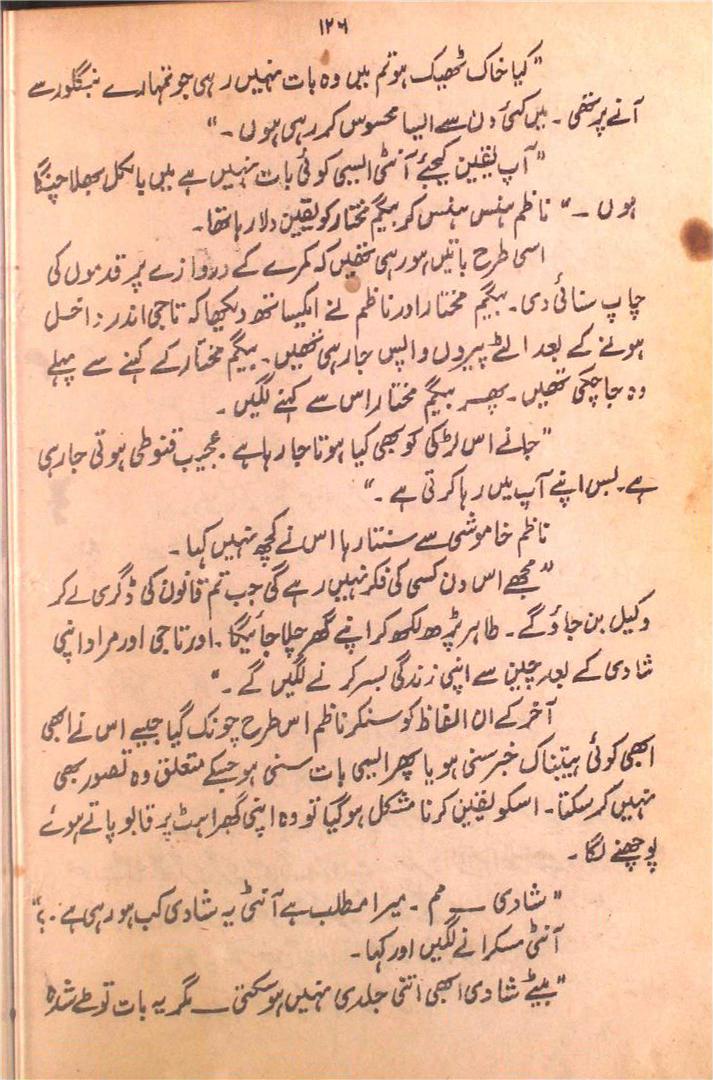 ۱۲۶
"کیا خاک ٹھیک ہو تم میں وہ بات نہیں رہی جو تمہارے بنگلور سے
آنے پر تھی ۔ میں کئی دن سے ایسا محسوس کر رہی ہوں ۔"
"آپ یقین کیجئے آنٹی ایسی کوئی بات نہیں ہے میں بالکل بھلا چنگا
ہوں ۔" ناظم ہنس ہنس کر بیگم مختار کو یقین دلا رہا تھا ۔
اسی طرح باتیں ہو رہی تھیں کہ کمرے کے دروازے پر قدموں کی
چاپ سنائی دی ۔ بیگم مختار اور ناظم نے ایکساتھ دیکھا کہ تاجی اندر داخل
ہونے کے بعد الٹے پیروں واپس جا رہی تھیں ۔ بیگم مختار کے کہنے سے پہلے
وہ جا چکی تھیں ۔ پھر بیگم مختار اس سے کہنے لگیں ۔
"جانے اس لڑکی کو بھی کیا ہوتا جا رہا ہے ۔ عجیب قنوطی ہوتی جا رہی
ہے ۔ بس اپنے آپ میں رہا کرتی ہے ۔"
ناظم خاموشی سے سنتا رہا اس نے کچھ نہیں کہا ۔
"مجھے اس دن کسی کی فکر نہیں رہے گی جب تم قانون کی ڈگری لے کر
وکیل بن جاؤ گے ۔ طاہر پڑھ لکھ کر اپنے گھر چلا جائیگا ۔ اور تاجی اور مراد اپنی
شادی کے بعد چین سے اپنی زندگی بسر کرنے لگیں گے ۔"
آخر کے ان الفاظ کو سنکر ناظم اس طرح چونک گیا جیسے اس نے ابھی
ابھی کوئی ہیبتناک خبر سنی ہو یا پھر ایسی بات سنی ہو جسکے متعلق وہ تصور بھی
نہیں کر سکتا ۔ اسکو یقین کرنا مشکل ہو گیا تو وہ اپنی گھبراہٹ پر قابو پاتے ہوئے
پوچھنے لگا ۔
"شادی ــ مم ۔ میرا مطلب ہے آنٹی یہ شادی کب ہو رہی ہے ۔؟"
آنٹی مسکرانے لگیں اور کہا ۔
"بیٹے شادی ابھی اتنی جلدی نہیں ہو سکتی ــ مگر یہ بات تو طے شدہ